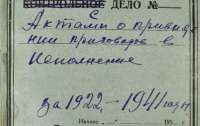 ДЕЛО №
Актами о приведе
нии приговоров в
исполнение
за 1922-1941 годы
Начато
195